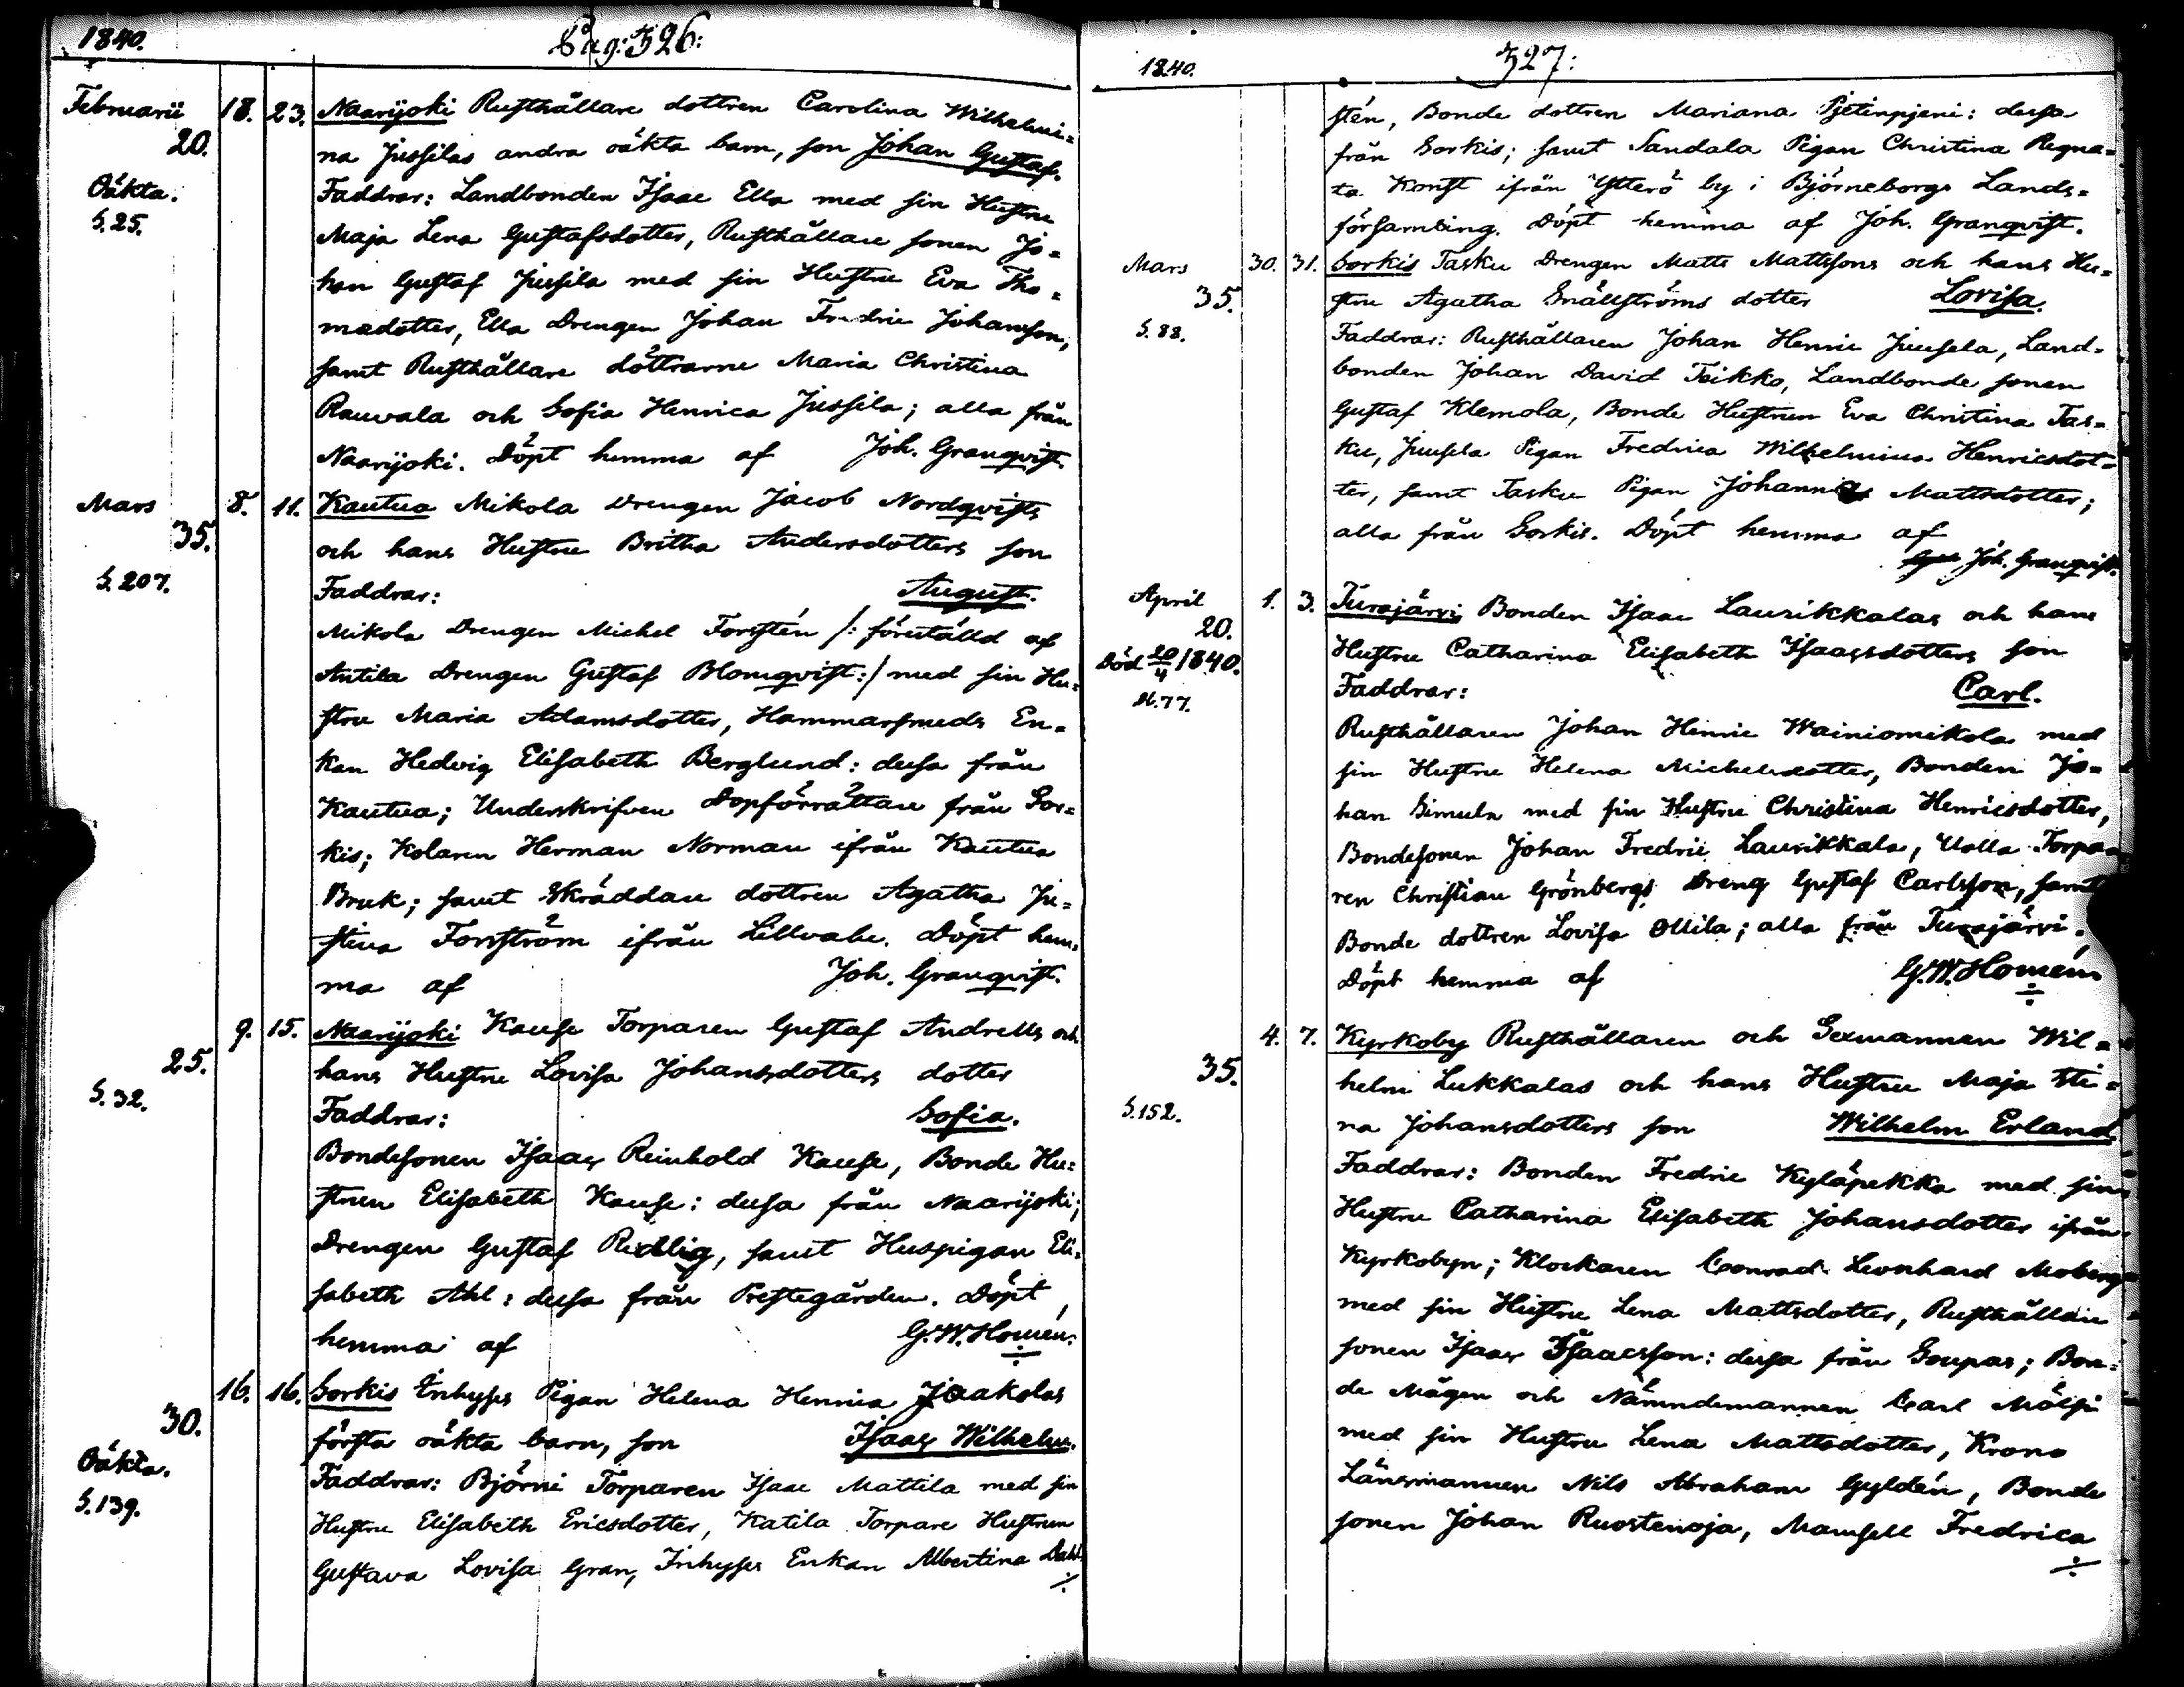 1840. Pag: 326:
Februarii 20. Oäkta. S. 25. 18. 23. Naarijoki Rusthållare dottren Carolina Wilhelmi=
na Jussilas andra oäkta barn, son Johan Gustaf.
Faddrar: Landbonden Isaac Ella med sin Hustru
Maja Lena Gustafsdotter, Rusthållare sonen Jo=
han Gustaf Jussila med sin Hustru Eva Tho=
madotter, Ella Drengen Johan Fredric Johansson,
samt Rusthållare döttrarne Maria Christina
Rauvala och Sofia Henrica Jussila; alla från
Naarijoki. Döpt hemma af Joh. Granqvist
Mars 35. S. 207. 8. 11. Kautua Mikola Drengen Jacob Nordqvists
och hans Hustru Britha Andersdotters son
Faddrar: August.
Mikola Drengen Michel Forstén /: föreställd af
Antila Drengen Gustaf Blomqvist :/ med sin Hu=
stru Maria Adamsdotter, Hammarsmeds En=
kan Hedvig Elisabeth Berglund: dessa från
Kautua; Underskrifven Dopförrättare från Sor=
kis; Kolaren Herman Norman ifrån Kautua
Bruk; samt Skräddare dottren Agatha Ju=
stina Forsström ifrån Lellvalu. Döpt hem=
ma af Joh. Granqvist.
25. S. 32. 9. 15. Naarijoki Kause Torparen Gustaf Andrells och
hans Hustru Lovisa Johansdotters dotter
Faddrar: Sofia.
Bondesonen Isaac Reinhold Kause, Bonde Hu=
strun Elisabeth Kause: dessa från Naarijoki;
Drengen Gustaf Redlig, samt Huspigan Eli=
sabeth Ahl: dessa från Prestegården. Döpt
hemma af G. W. Homén.
30. Oäkta. S. 139. 16. 16. Sorkis Inhyses Pigan Helena Henrica Jaakolas
första oäkta barn, son Isaac Wilhelm.
Faddrar: Björni Torparen Isaac Mattila med sin
Hustru Elisabeth Ericsdotter, Katila Torpare Hustrun
Gustava Lovisa Gran, Inhyses Enkan Albertina Dahl=
1840. 327:
stén, Bonde dottren Mariana Pjetinpjeni: dessa
från Sorkis; samt Sandala Pigan Christina Regna=
ta Konst ifrån Ytterö by i Björneborgs Lands=
församling. Döpt hemma af Joh. Granqvist.
Mars 35. S. 88. 30. 31. Sorkis Tasku Drengen Matts Mattssons och hans Hu=
stru Agatha Snällströms dotter Lovisa.
Faddrar: Rusthållaren Johan Henric Juusela, Land=
bonden Johan David Teikko, Landbonde sonen
Gustaf Klemola, Bonde Hustrun Eva Christina Tas=
ku, Juusela Pigan Fredrica Wilhelmina Henricsdot=
ter, samt Tasku Pigan Johanna Mattsdotter;
alla från Sorkis. Döpt hemma af
Joh. Granqvist.
April 20. Död 20/4 1840. N. 77. 1. 3. Turajärvi Bonden Isaac Laurikkalas och hans
Hustru Catharina Elisabeth Isaacsdotters son
Faddrar: Carl.
Rusthållaren Johan Henric Wainiomikola med
sin Hustru Helena Michelsdotter, Bonden Jo=
han Simula med sin Hustru Christina Henricsdotter,
Bondesonen Johan Fredric Laurikkala, Ualla Torpa=
ren Christian Grönbergs Dreng Gustaf Carlsson, samt
Bonde dottren Lovisa Ollila; alla från Turajärvi.
Döpt hemma af G. W. Homén
35. S. 152. 4. 7. Kyrkoby Rusthållaren och Sexmannen Wil=
helm Lukkalas och hans Hustru Maja Sti=
na Johansdotters son Wilhelm Erland
Faddrar: Bonden Fredric Kyläpekka med sin
Hustru Catharina Elisabeth Johansdotter ifrån
Kyrkobyn; Klockaren Conrad Leonhard Moberg
med sin Hustru Lena Mattsdotter, Rusthållare
sonen Isaac Isaacsson: dessa från Soupas; Bon=
de Mågen och Nämndemannen Carl Mölsi
med sin Hustru Lena Mattsdotter, Krono
Länsmannen Nils Abraham Gyldén, Bonde
sonen Johan Ruostenoja, Mamsell Fredrica